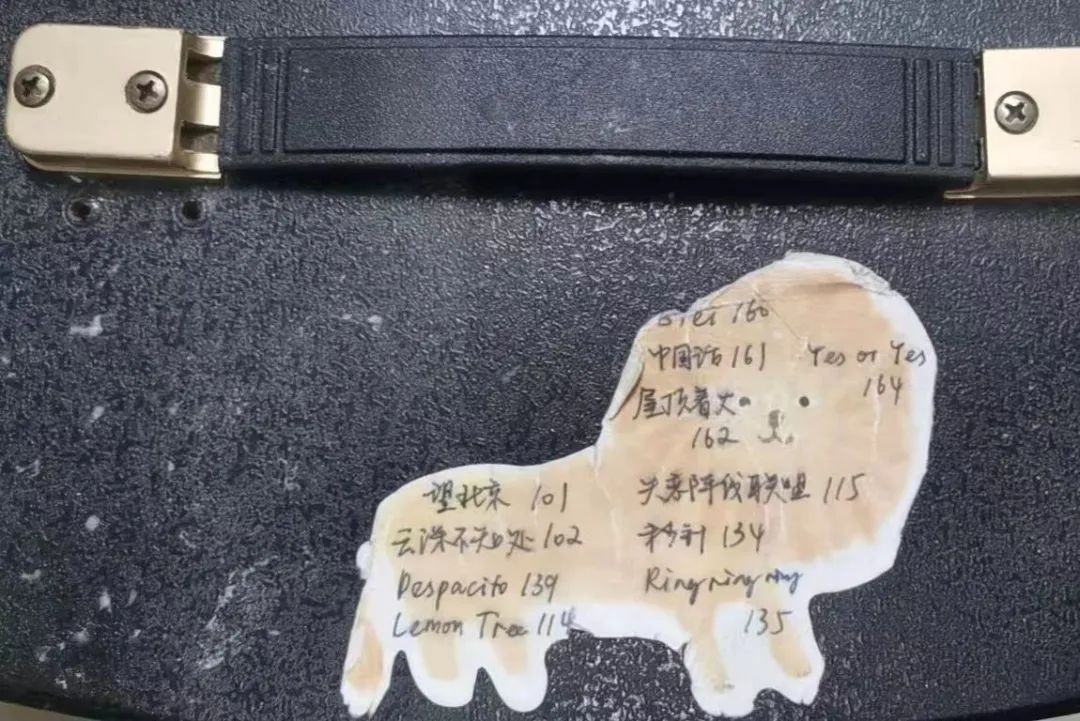 160
中国话 161 Yes or Yes
164
屋顶着火
162
望北京 101
云深不知处 102
Despacito 139
Lemon Tree 114
失恋阵线联盟 115
秒针 134
Ring ring ring
135